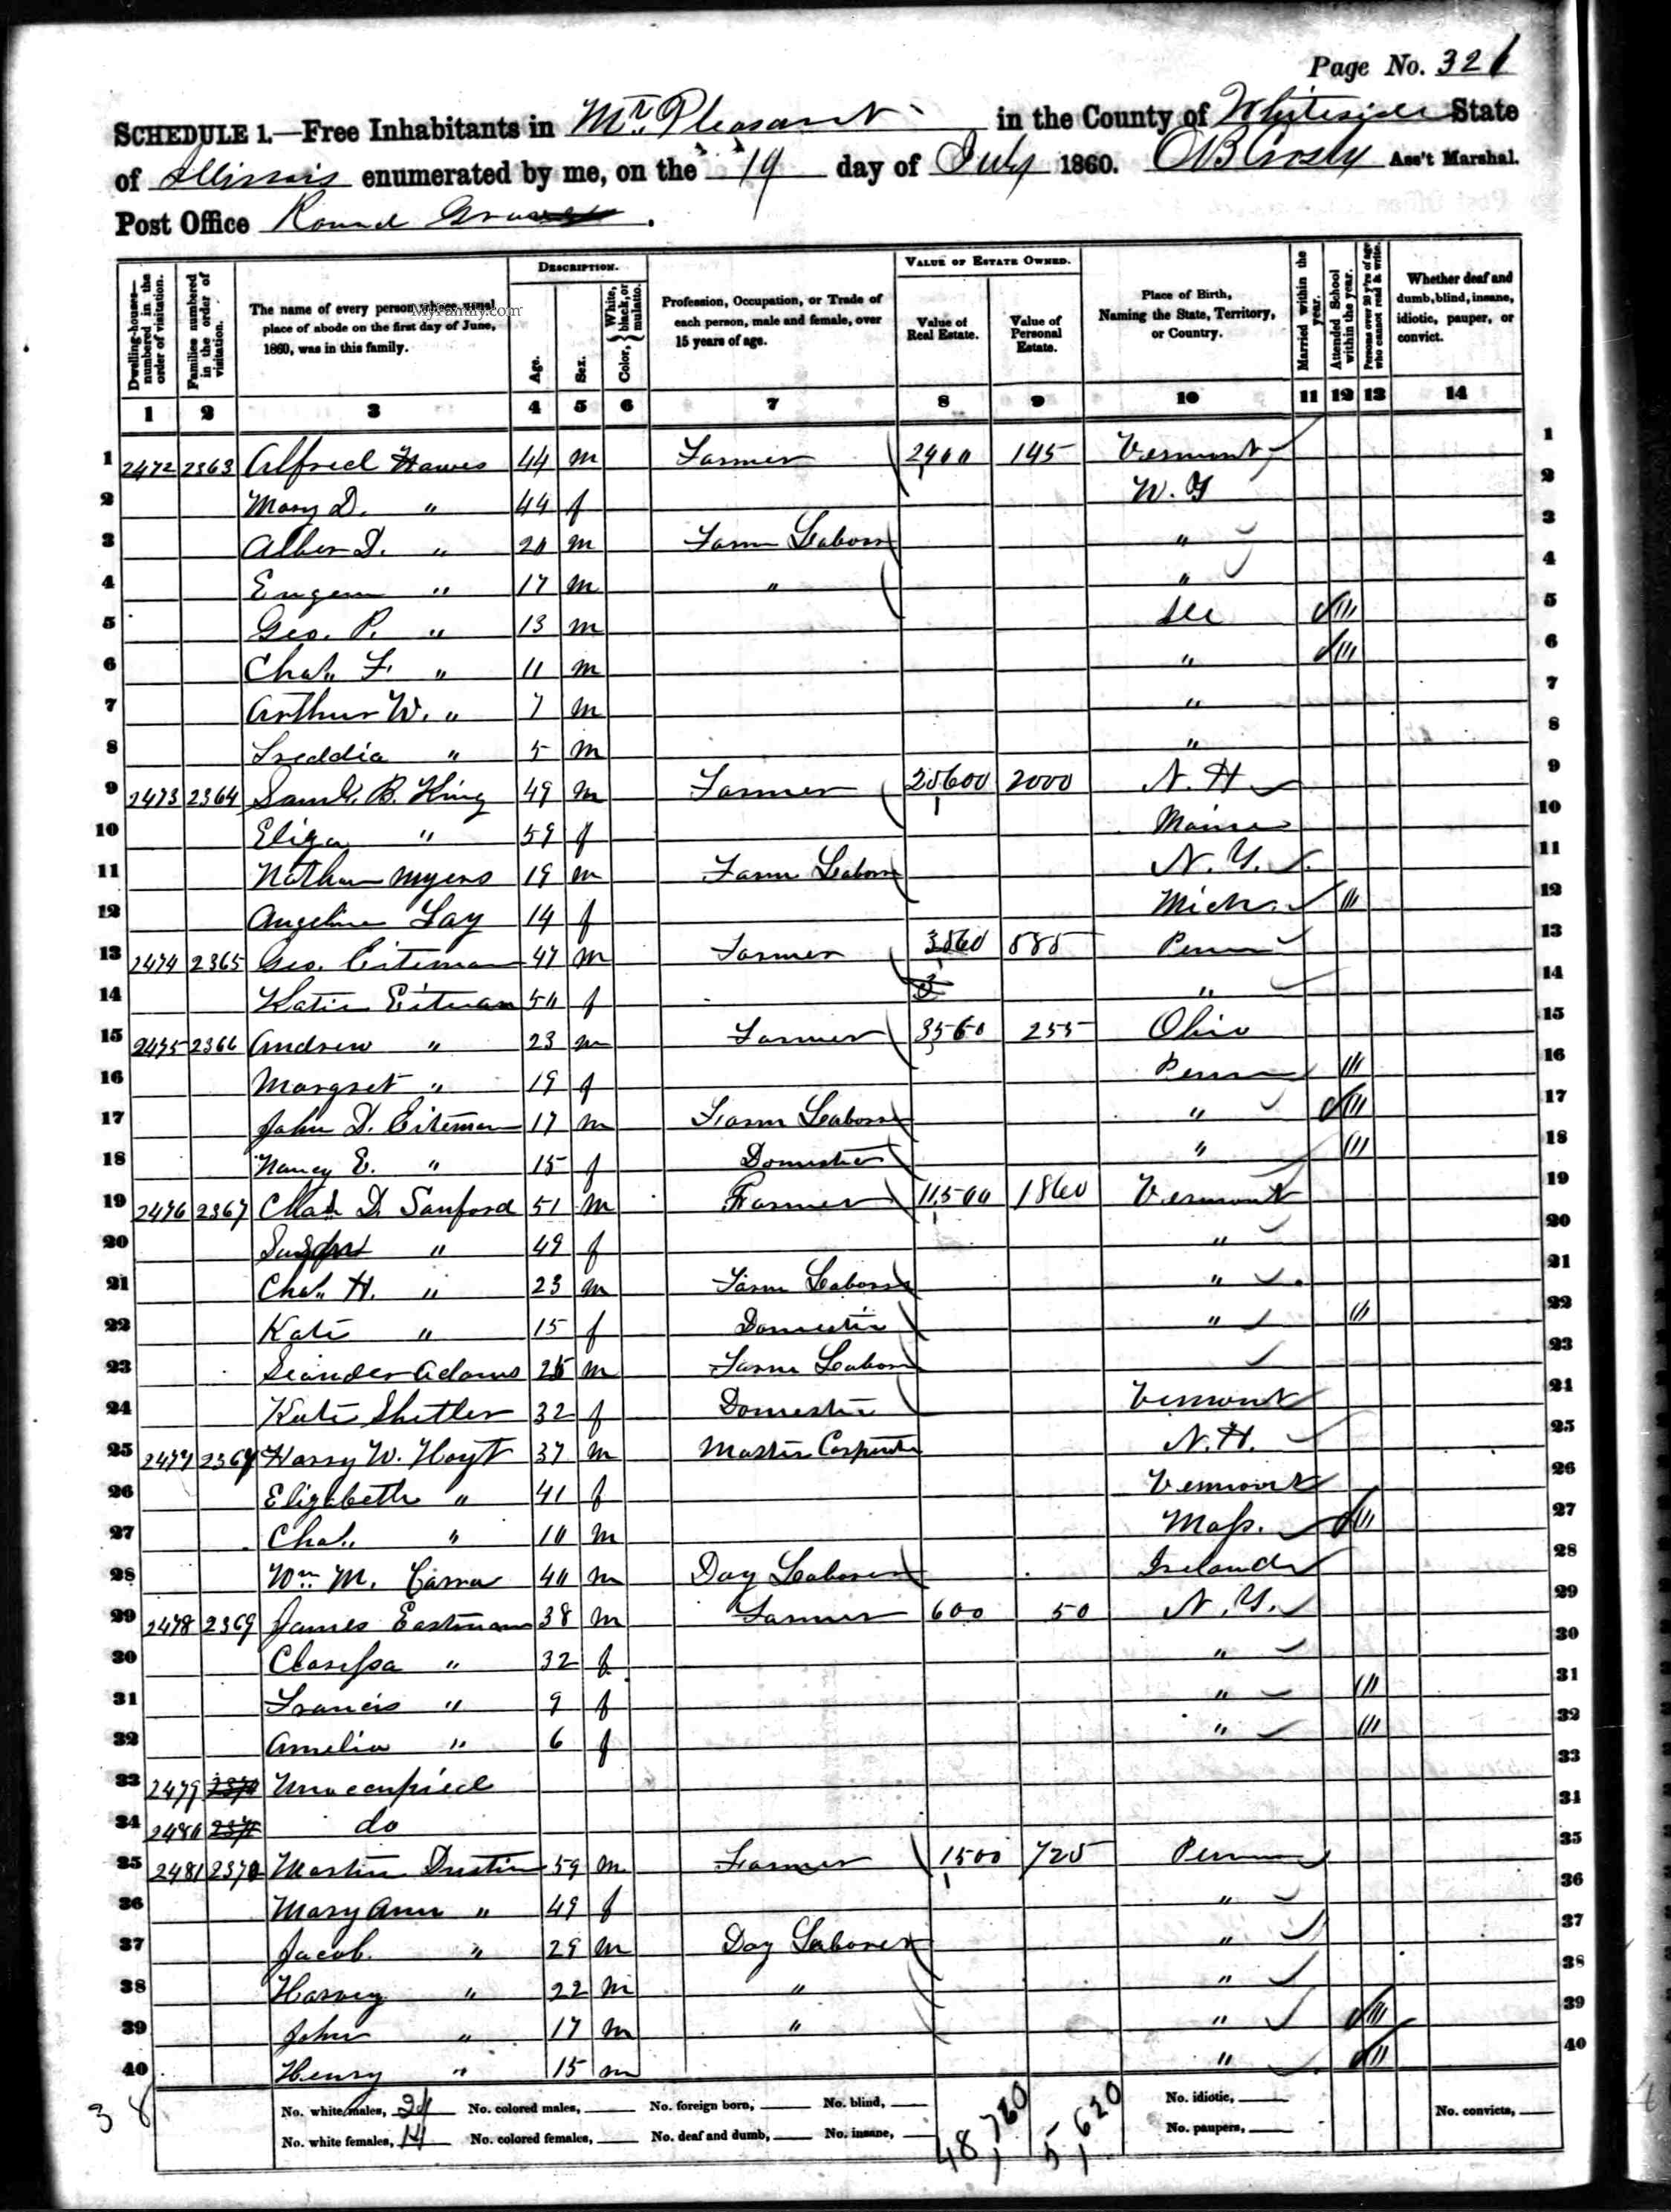 Page No. 321
SCHEDULE 1.—Free Inhabitants in Mt. Pleasant in the County of Whiteside State
of Illinois enumerated by me, on the 19 day of July 1860. O B Crosby Ass't Marshal.
Post Office Round Grove.
Dwelling-houses—numbered in the order of visitation.
Families numbered in the order of visitation.
The name of every person whose usual place of abode on the first day of June, 1860, was in this family.
MyFamily.com
DESCRIPTION.
Age.
Sex.
Color, { White, black, or mulatto.
Profession, Occupation, or Trade of each person, male and female, over 15 years of age.
VALUE OF ESTATE OWNED.
Value of Real Estate.
Value of Personal Estate.
Place of Birth, Naming the State, Territory, or Country.
Married within the year.
Attended School within the year.
Persons over 20 y'rs of age who cannot read & write.
Whether deaf and dumb, blind, insane, idiotic, pauper, or convict.
1 2 3 4 5 6 7 8 9 10 11 12 13 14
1 2472 2363 Alfred Hawes 44 m Farmer 145 Vermont 1
2 Mary D. " 44 f 2
3 " 20 m Farm Labor " 3
4 Eugene " 17 m " " 4
5 Geo. P. " 13 m Ill 5
6 Chas. F. " 11 m " 6
7 Arthur W. " 7 m " 7
8 Freddie " 5 m " 8
9 2473 2364 Saml. B. King 49 m Farmer 2000 N. H 9
10 Eliza " 59 f Maine 10
11 Nathan Myers 19 m Farm Labor N. Y. 11
12 Angeline Fay 14 f Mich. 12
13 2474 2365 Geo. Eiteman 47 m Farmer Penn 13
14 Katie Eiteman 50 f " 14
15 2475 2366 Andrew " 23 m Farmer 255 Ohio 15
16 Margret " 19 f Penn 16
17 John D. Eiteman 17 m Farm Labor " 17
18 Nancy E. " 15 f Domestic " 18
19 2476 2367 Chas D. Sanford 51 m Farmer 11,500 1860 Vermont 19
20 " 49 f " 20
21 Chas. H. " 23 m Farm Labor " 21
22 Kate " 15 f Domestic " 22
23 Leander Adams m Farm Labor 23
24 Kate Shetler 32 f Domestic Vermont 24
25 2477 Harry W. Hoyt 37 m Master Carpenter N. H. 25
26 Elizabeth " 41 f Vermont 26
27 Chas. " 10 m Mass. 27
28 Wm. M. 40 m Day Laborer Ireland 28
29 2478 2369 James Eastman 38 m Farmer 600 50 N. Y. 29
30 Clarissa " 32 f " 30
31 Francis " 9 f " 31
32 Amelia " 6 f " 32
33 2479 Unoccupied 33
34 2480 do 34
35 2481 2370 Martin Dustin 59 m Farmer 1500 725 Penn 35
36 Mary Ann " 49 f " 36
37 Jacob " 29 m Day Laborer " 37
38 Harvey " 22 m " " 38
39 John " 17 m " " 39
40 Henry " 15 m " 40
38
No. white males, 24 No. colored males, No. foreign born, No. blind, 48,760 5,620 No. idiotic,
No. white females, 14 No. colored females, No. deaf and dumb, No. insane, No. paupers, No. convicts,